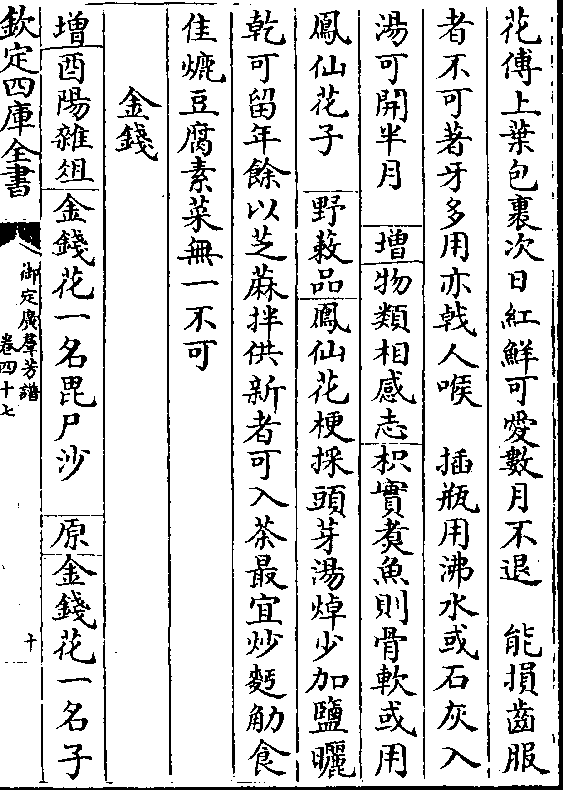 花傅上葉包裹次日紅鮮可愛數月不退　能損齒服
者不可著牙多用亦戟人喉　插瓶用沸水或石灰入
湯可開半月　增物類相感志枳實煑魚則骨軟或用
鳳仙花子　野蔌品鳳仙花梗採頭芽湯焯少加鹽曬
乾可留年餘以芝蔴拌供新者可入茶最宜炒麪觔食
佳熝豆腐素菜無一不可
金錢
增酉陽雜俎金錢花一名毘尸沙　原金錢花一名子
欽定四庫全書
御定廣羣芳譜
卷四十七
十